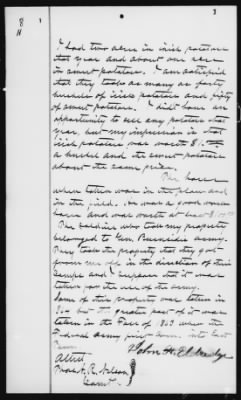 8
I had two acres in irish potatoes
that year and about one acre
in sweet potatoes. I am satisfied
that they took as many as forty
bushels of irish potatoes and fifty
of sweet potatoes. I didn't have an
opportunity to sell any potatoes that
year, but my impression is that
irish potatoes was worth $1.00
a bushel and the sweet potatoes
about the same price.
The horse
when taken was in the plow and
in the field. He was a good
horse and was worth at least
The soldiers who took my property
belonged to Gen. Burnsides Army.
They took the property that they got
from me off in the direction of their
Camps and I suppose that it was
taken for the use of the army.
Some of this property was taken in
but the greater part of it was
taken in the Fall of 1863 when the
Federal army first came into East
Tenn.
Attest